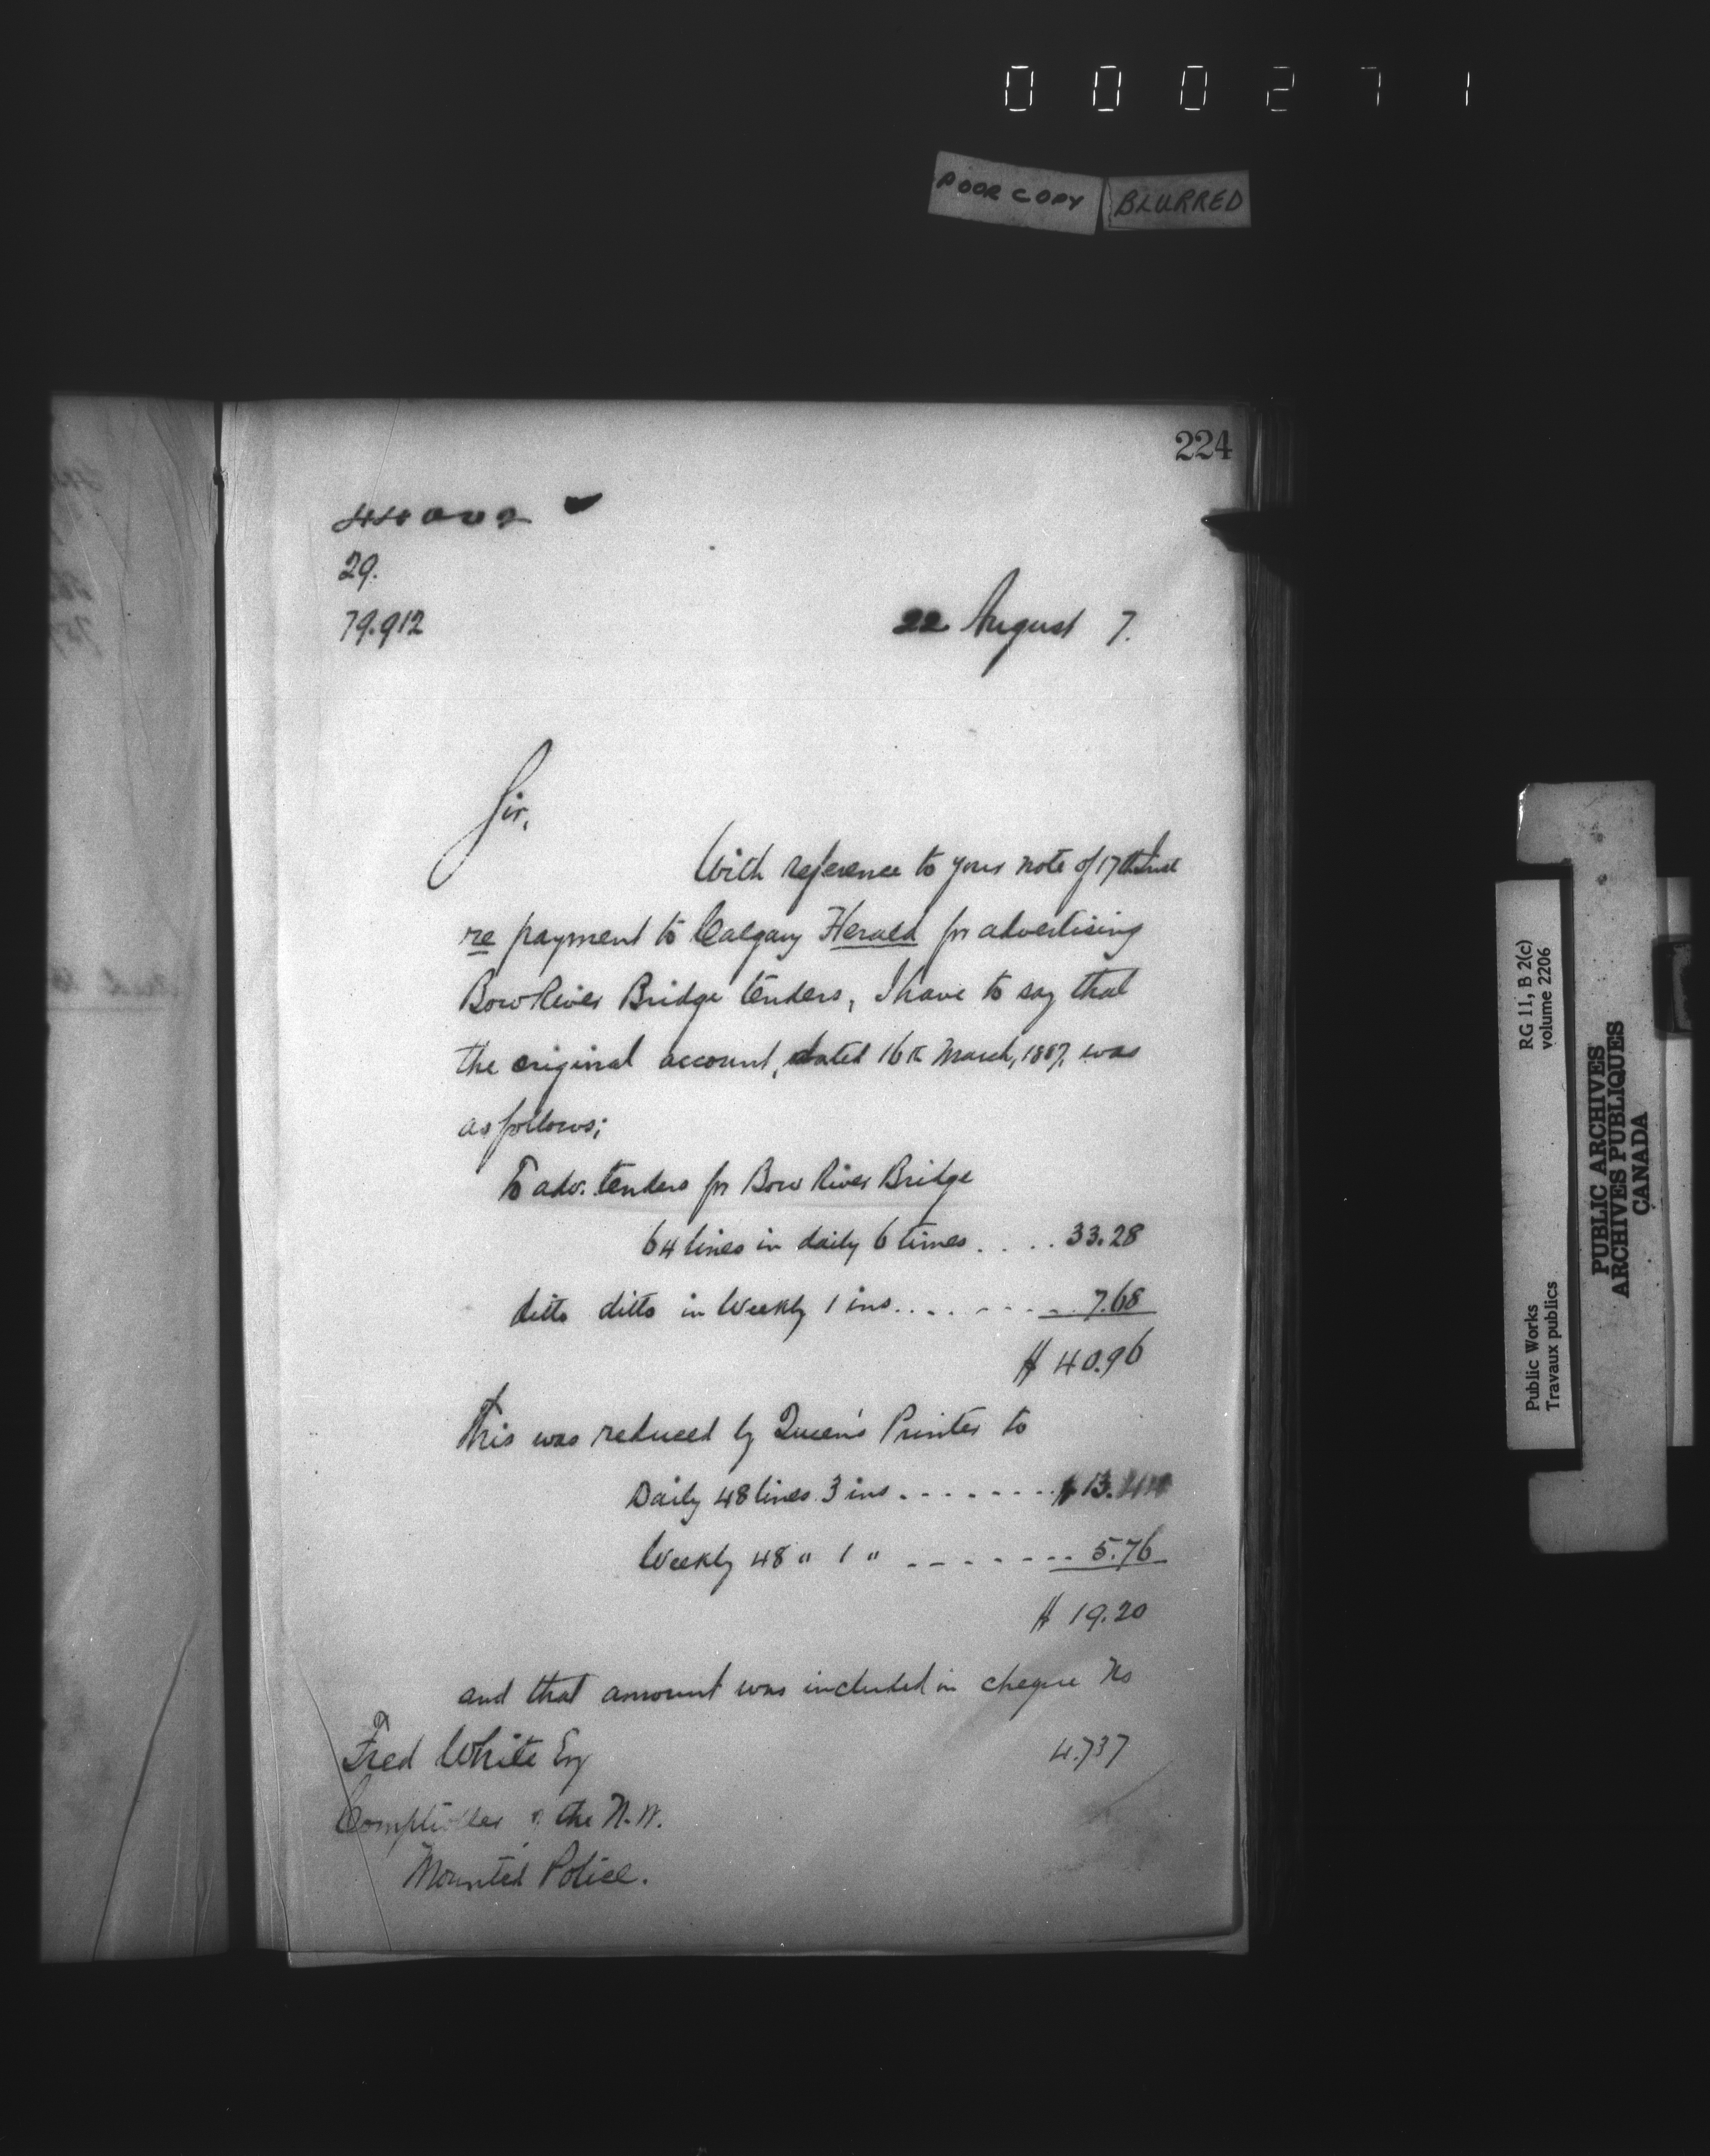 000271
POOR COPY BLURRED
224
29.
79.912
22 August 7.
Sir,
With reference to your note of 17th Inst
re payment to Calgary Herald for advertising
Bow River Bridge tenders, I have to say that
the original account, dated 16th March, 1887, was
as follows;
To adv. tenders for Bow River Bridge
64 lines in daily 6 times .... 33.28
ditto ditto in Weekly 1 ins........ 7.68
$ 40.96
This was reduced by Queen's Printer to
Daily 48 lines 3 ins ........ $ 13.44
Weekly 48 " 1 " ........ 5.76
$ 19.20
and that amount was included in cheque No
4.737
Fred White Esq
Comptroller of the N.W.
Mounted Police.
RG 11, B 2(c)
volume 2206
Public Works
Travaux publics
PUBLIC ARCHIVES
ARCHIVES PUBLIQUES
CANADA